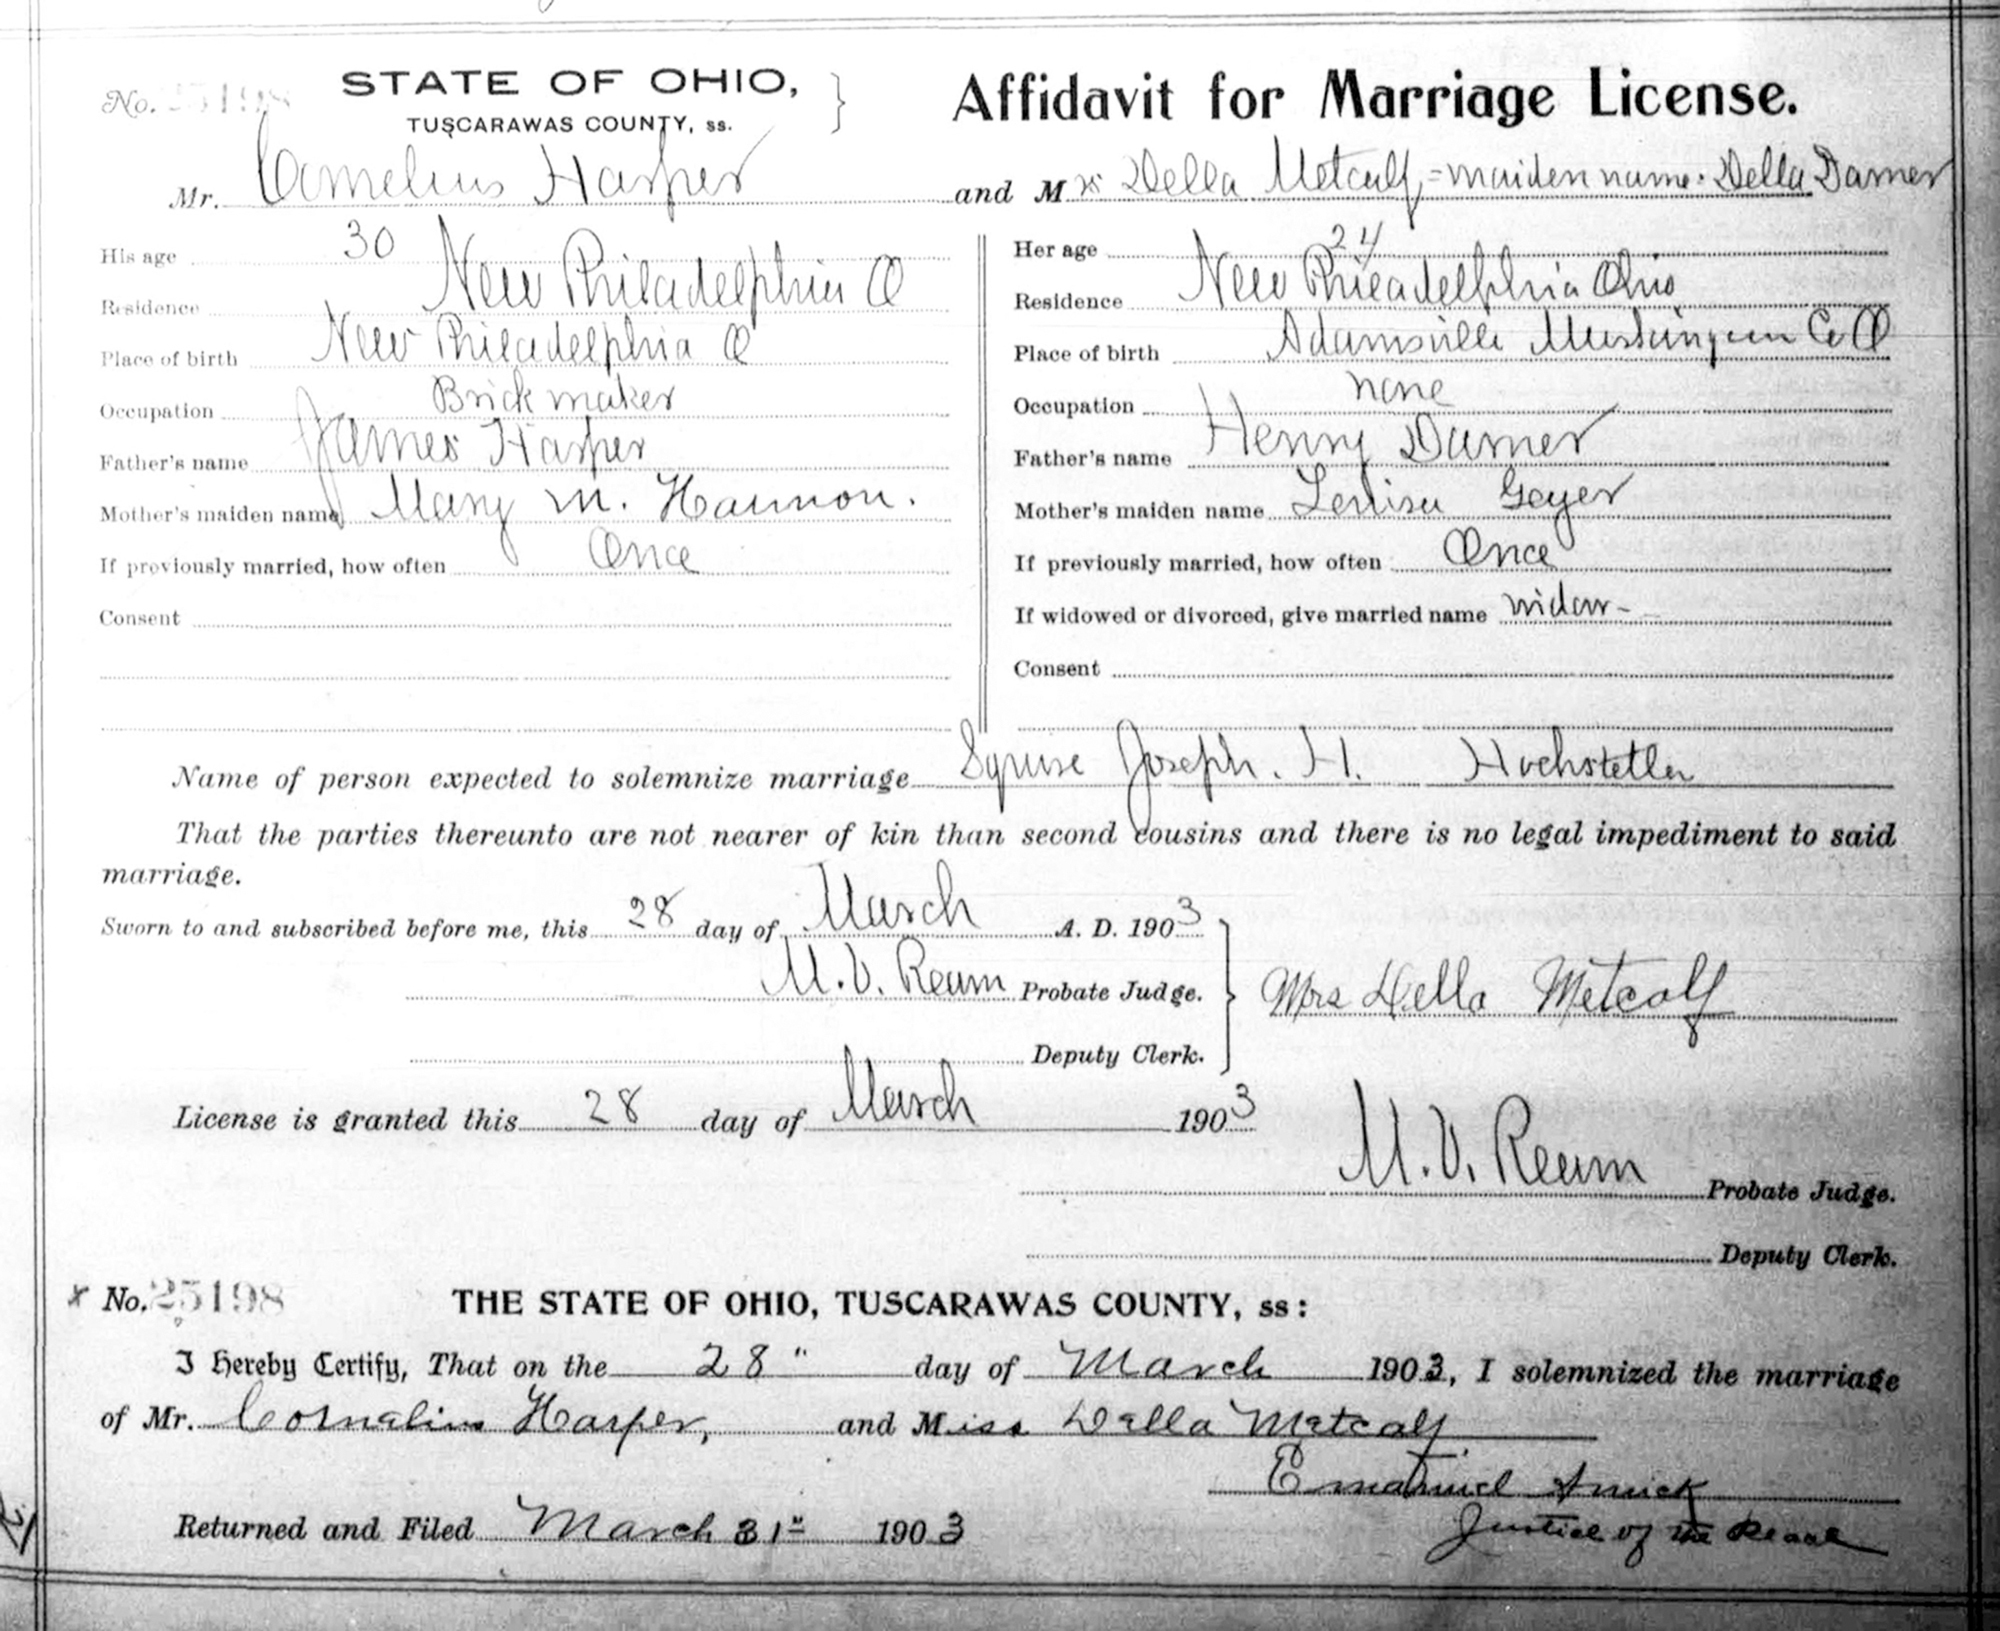 No. 25198 STATE OF OHIO, Affidavit for Marriage License.
TUSCARAWAS COUNTY, ss.
Mr. Cornelius Harper and Mrs Della Metcalf, = maiden name. Della Darner
His age 30
Residence New Philadelphia O
Place of birth New Philadelphia O
Occupation Brick maker
Father's name James Harper
Mother's maiden name Mary M. Harmon.
If previously married, how often Once
Consent
Her age 24
Residence New Philadelphia Ohio
Place of birth Adamsville Muskingum Co O
Occupation none
Father's name Henry Darner
Mother's maiden name Geyer
If previously married, how often Once
If widowed or divorced, give married name widow -
Consent
Name of person expected to solemnize marriage Squire Joseph. H. Hochstetler
That the parties thereunto are not nearer of kin than second cousins and there is no legal impediment to said
marriage.
Sworn to and subscribed before me, this 28 day of March A. D. 1903
M. V. Ream Probate Judge. Mrs Della Metcalf
Deputy Clerk.
License is granted this 28 day of March 1903
M. V. Ream Probate Judge.
Deputy Clerk.
x No. 25198 THE STATE OF OHIO, TUSCARAWAS COUNTY, ss:
I Hereby Certify, That on the 28" day of March 1903, I solemnized the marriage
of Mr. Cornelius Harper, and Miss Della Metcalf
Emanuel
Returned and Filed March 31" 1903 Justice of the Peace